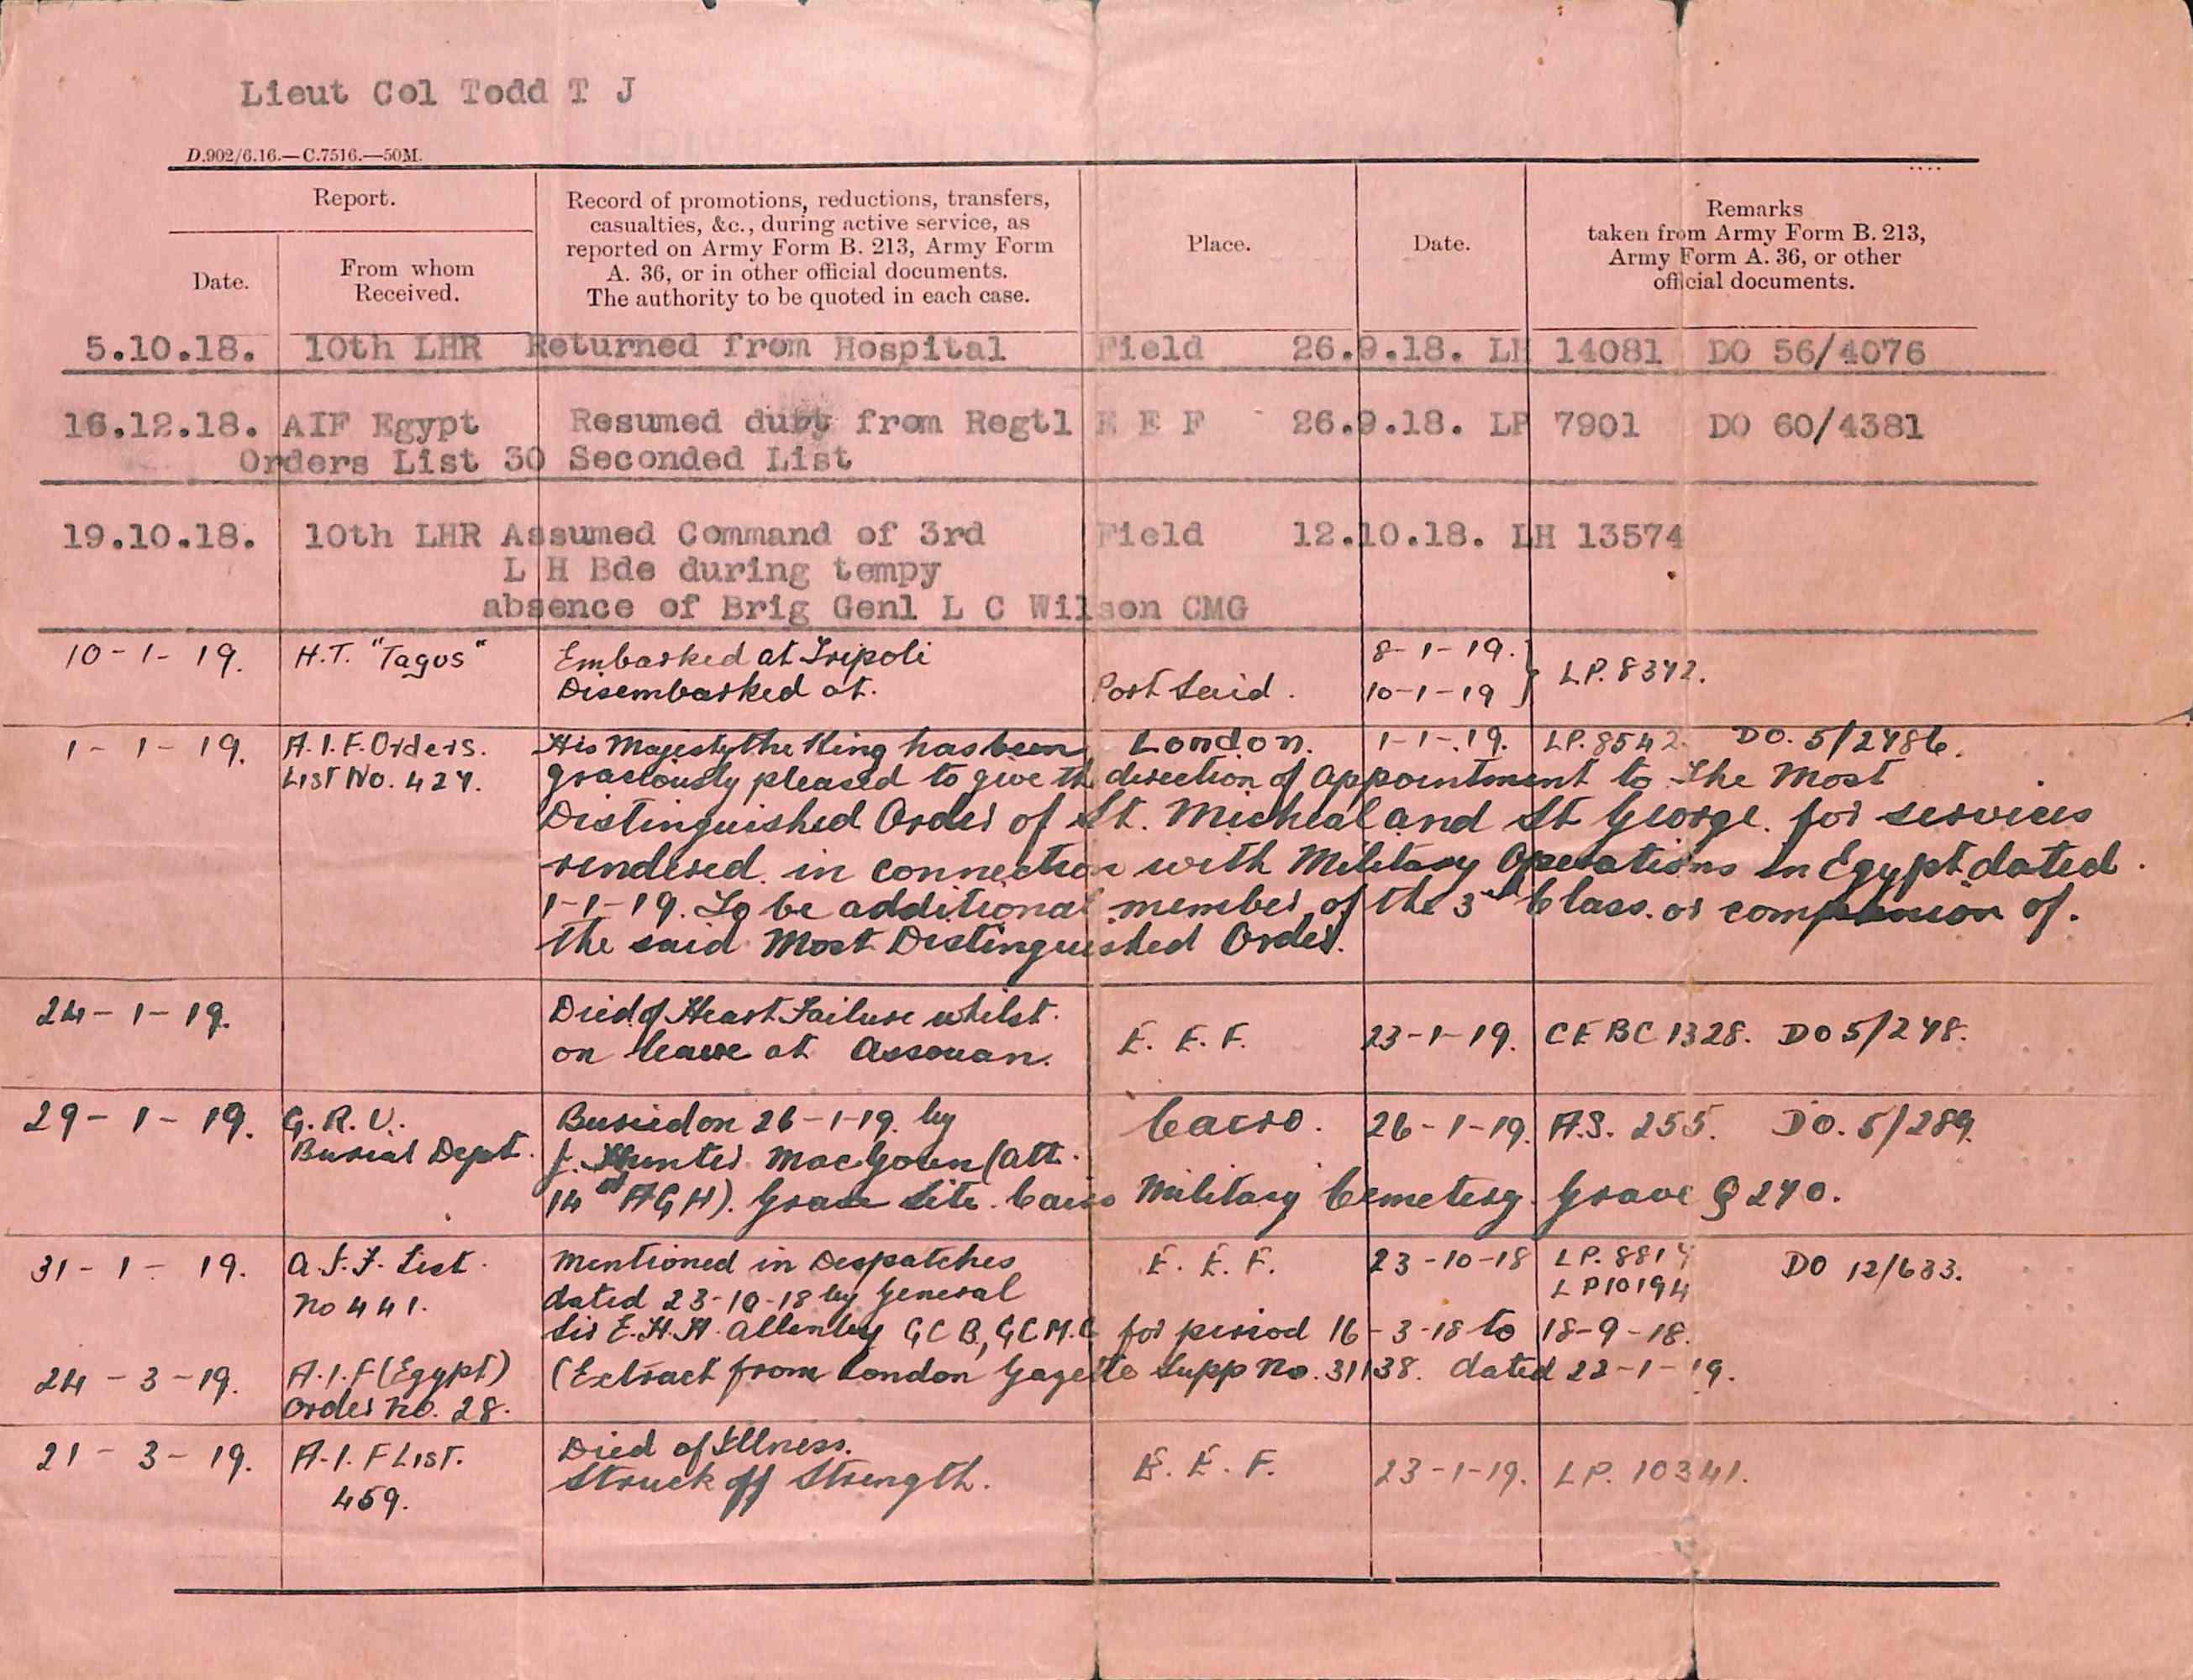 Lieut Col Todd T J
D.902/6.16.—C.7516.—50M.
Report.
Date.
From whom
Received.
Record of promotions, reductions, transfers,
casualties, &c., during active service, as
reported on Army Form B. 213, Army Form
A. 36, or in other official documents.
The authority to be quoted in each case.
Place.
Date.
Remarks
taken from Army Form B. 213,
Army Form A. 36, or other
official documents.
5.10.18. 10th LHR Returned from Hospital Field 26.9.18. LH 14081 DO 56/4076
16.12.18. AIF Egypt Resumed duty from Regtl E E F 26.9.18. LP 7901 DO 60/4381
Orders List 30 Seconded List
19.10.18. 10th LHR Assumed Command of 3rd Field 12.10.18. LH 13574
L H Bde during tempy
absence of Brig Genl L C Wilson CMG
10-1-19. H.T. "Tagus" Embarked at Tripoli 8-1-19.
Disembarked at. Port Said. 10-1-19 } LP. 8372.
1-1-19. A.I.F. Orders. His Majesty the King has been London. 1-1-19. LP. 8542. DO. 5/2486.
List No. 427. graciously pleased to give the direction of appointment to The Most
Distinguished Order of St. Micheal and St George. for services
rendered. in connection with Military Operations in Egypt dated.
1-1-19. To be additional member of the 3rd Class. or companion of.
the said Most Distinguished Order.
24-1-19. Died of Heart Failure whilst.
on leave at Assouan. E. E. F. 23-1-19. CEBC 1328. DO 5/278.
29-1-19. G.R.U. Buried on 26-1-19. by Cairo. 26-1-19. A.S. 255. DO. 5/289.
Burial Dept. J. Hunter MacGowen (att.
14th AGH). Grave Site. Cairo Military Cemetery. Grave Q 270.
31-1-19. A.I.F. List. Mentioned in Despatches E. E. F. 23-10-18 LP. 8817 DO 12/633.
No 441. dated 23-10-18 by General LP10194
Sir E.H.H. Allenby GCB, GCMG for period 16-3-18 to 18-9-18.
24-3-19. A.I.F (Egypt) (Extract from London Gazette Supp No. 31138. dated 22-1-19.
Order No. 28.
21-3-19. A.I.F List. Died of Illness.
459. Struck off Strength. E. E. F. 23-1-19. LP. 10341.